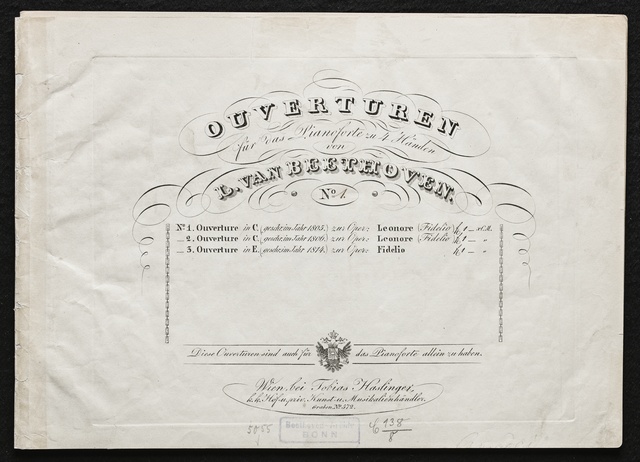 OUVERTUREN
für das Pianoforte zu 4 Händen
von
L. VAN BEETHOVEN.
No. 1.
No 1. Ouverture in C. (geschr. im Jahr 1805.) zur Oper: Leonore (Fidelio) f 1 _ x C.M.
_ 2. Ouverture in C. (geschr. im Jahr 1806.) zur Oper: Leonore (Fidelio) f 1 _ "
_ 3. Ouverture in E. (geschr. im Jahr 1814.) zur Oper: Fidelio f 1 _ "
Diese Ouverturen sind auch für das Pianoforte allein zu haben.
Wien, bei Tobias Haslinger,
k.k. Hof u. priv. Kunst u. Musikalienhändler,
Graben No. 572.
5055
BONN
C 138
8